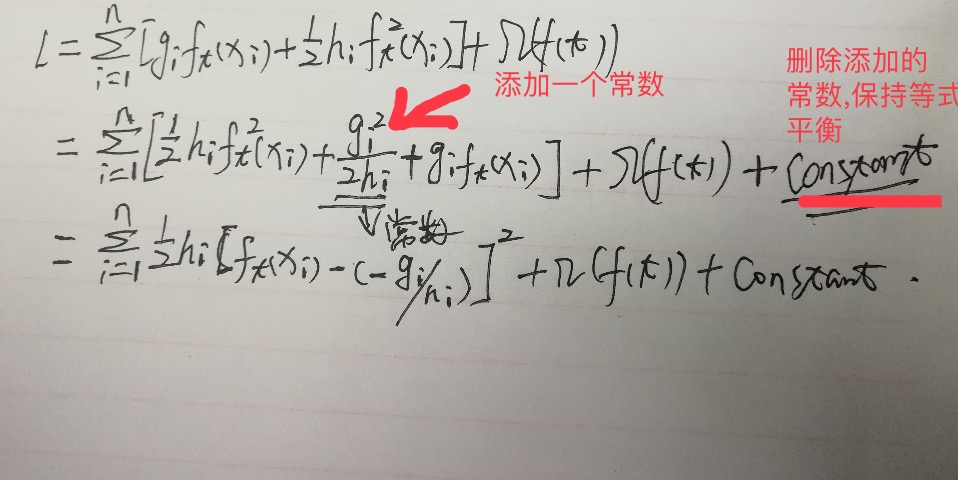 L = \sum_{i=1}^{n} [g_i f_t(x_i) + \frac{1}{2} h_i f_t^2(x_i)] + Ω(f(t))
添加一个常数
删除添加的
常数,保持等式
平衡
= \sum_{i=1}^{n} [\frac{1}{2} h_i f_t^2(x_i) + \frac{g_i^2}{2h_i} + g_i f_t(x_i)] + Ω(f(t)) + Constant
(常数)
= \sum_{i=1}^{n} \frac{1}{2} h_i [f_t(x_i) - (-g_i/h_i)]^2 + Ω(f(t)) + Constant.